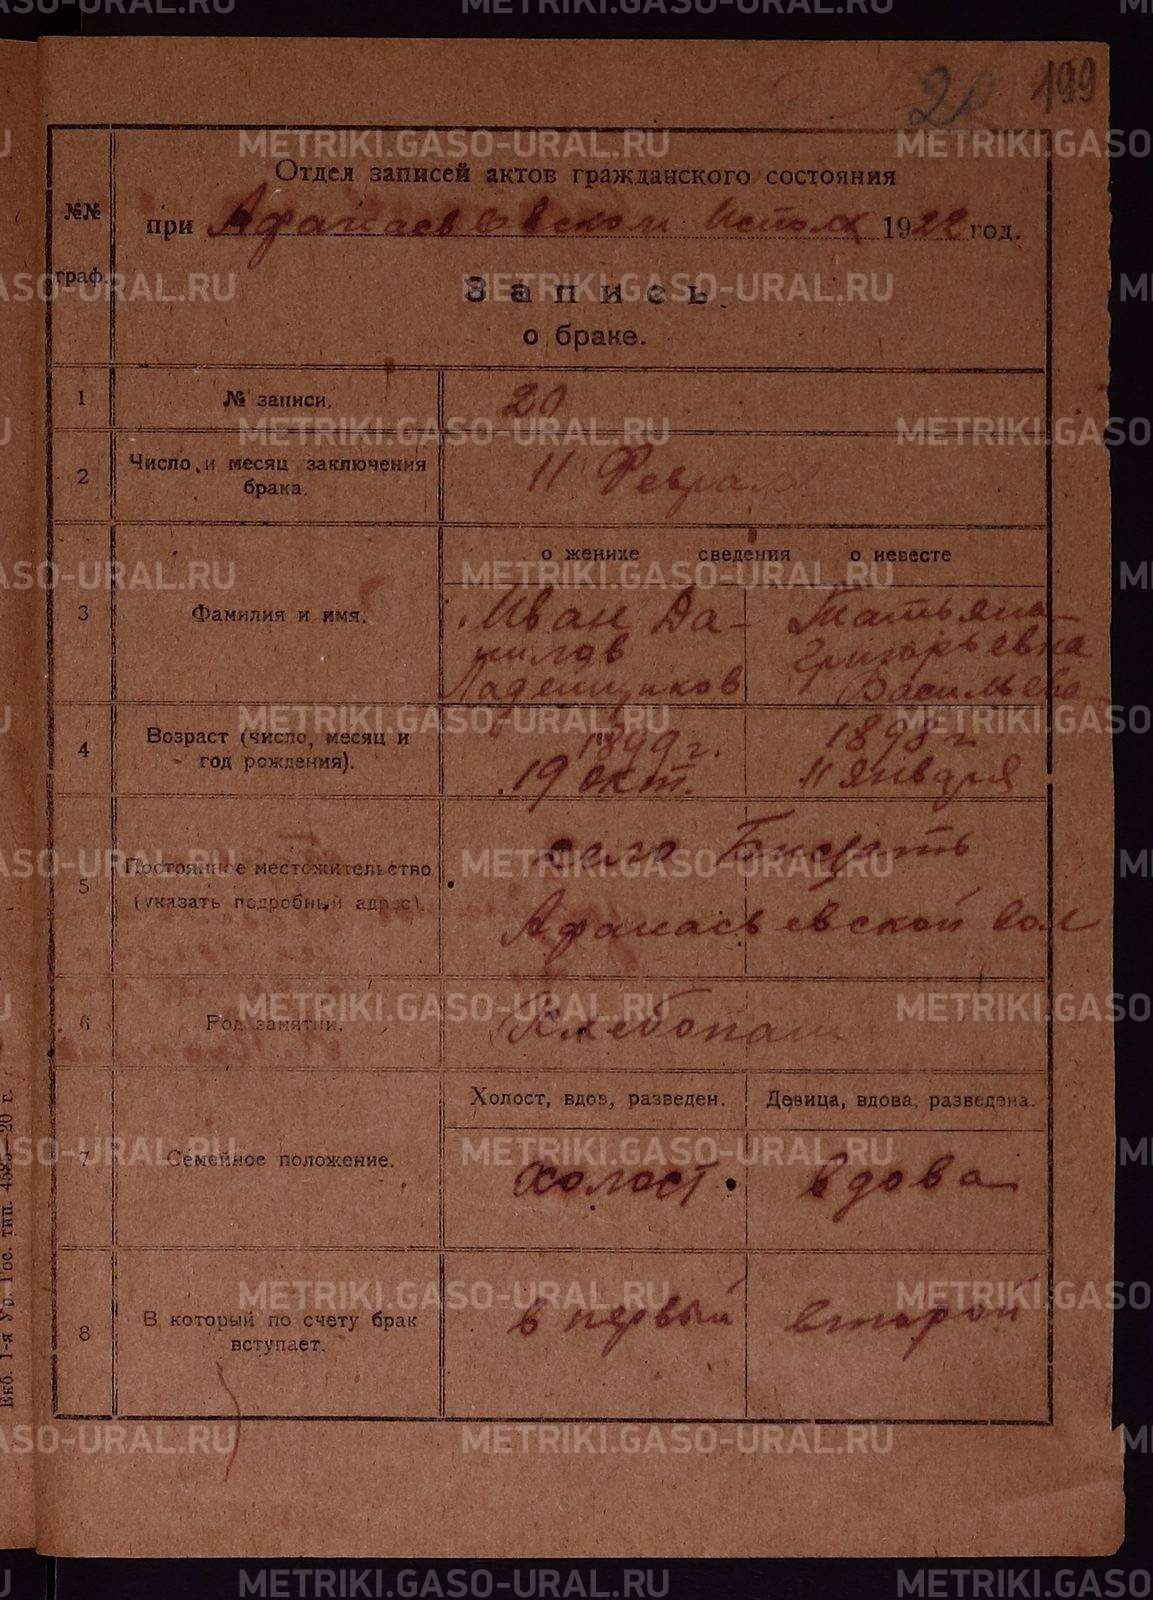 20 199
Отдел записей актов гражданского состояния
№№ граф.
при Афанасьевском Исполк 1922 год.
Запись
о браке.
1 № записи. 20
2 Число и месяц заключения брака. 11 Февраля
о женихе сведения о невесте
3 Фамилия и имя.
Иван Да-
нилов
Ладейщиков
Татьяна
Григорьевна
Васильева
4 Возраст (число, месяц и
год рождения).
1899 г.
19 окт.
1898 г
11 января
5 Постоянное местожительство
(указать подробный адрес).
село Бисерть
Афанасьевской вол
6 Род занятий. Хлебопаш
Холост, вдов, разведен. Девица, вдова, разведена.
7 Семейное положение. холост. вдова
8 В который по счету брак
вступает.
в первый второй
Екб. 1-я Ур. Гос. тип. 4585—20 г.
METRIKI.GASO-URAL.RU